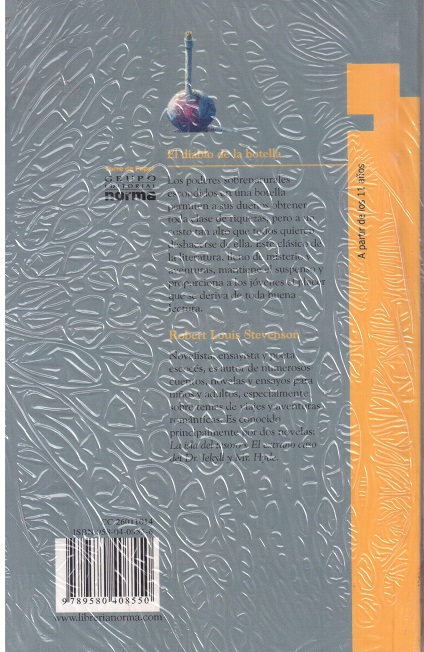 El diablo de la botella
Torre de Papel
GRUPO
EDITORIAL
norma
Los poderes sobrenaturales
escondidos en una botella
permiten a sus dueños obtener
toda clase de riquezas, pero a un
costo tan alto que todos quieren
deshacerse de ella. Este clásico de
la literatura, lleno de misterio y
aventuras, mantiene el suspenso y
proporciona a los jóvenes el placer
que se deriva de toda buena
lectura.
Robert Louis Stevenson
Novelista, ensayista y poeta
escocés, es autor de numerosos
cuentos, novelas y ensayos para
niños y adultos, especialmente
sobre temas de viajes y aventuras
románticas. Es conocido
principalmente por dos novelas:
La isla del tesoro y El extraño caso
del Dr. Jekyll y Mr. Hyde.
A partir de los 11 años
CC 26011014
ISBN 958-04-0855-6
9 789580 408550
www.librerianorma.com